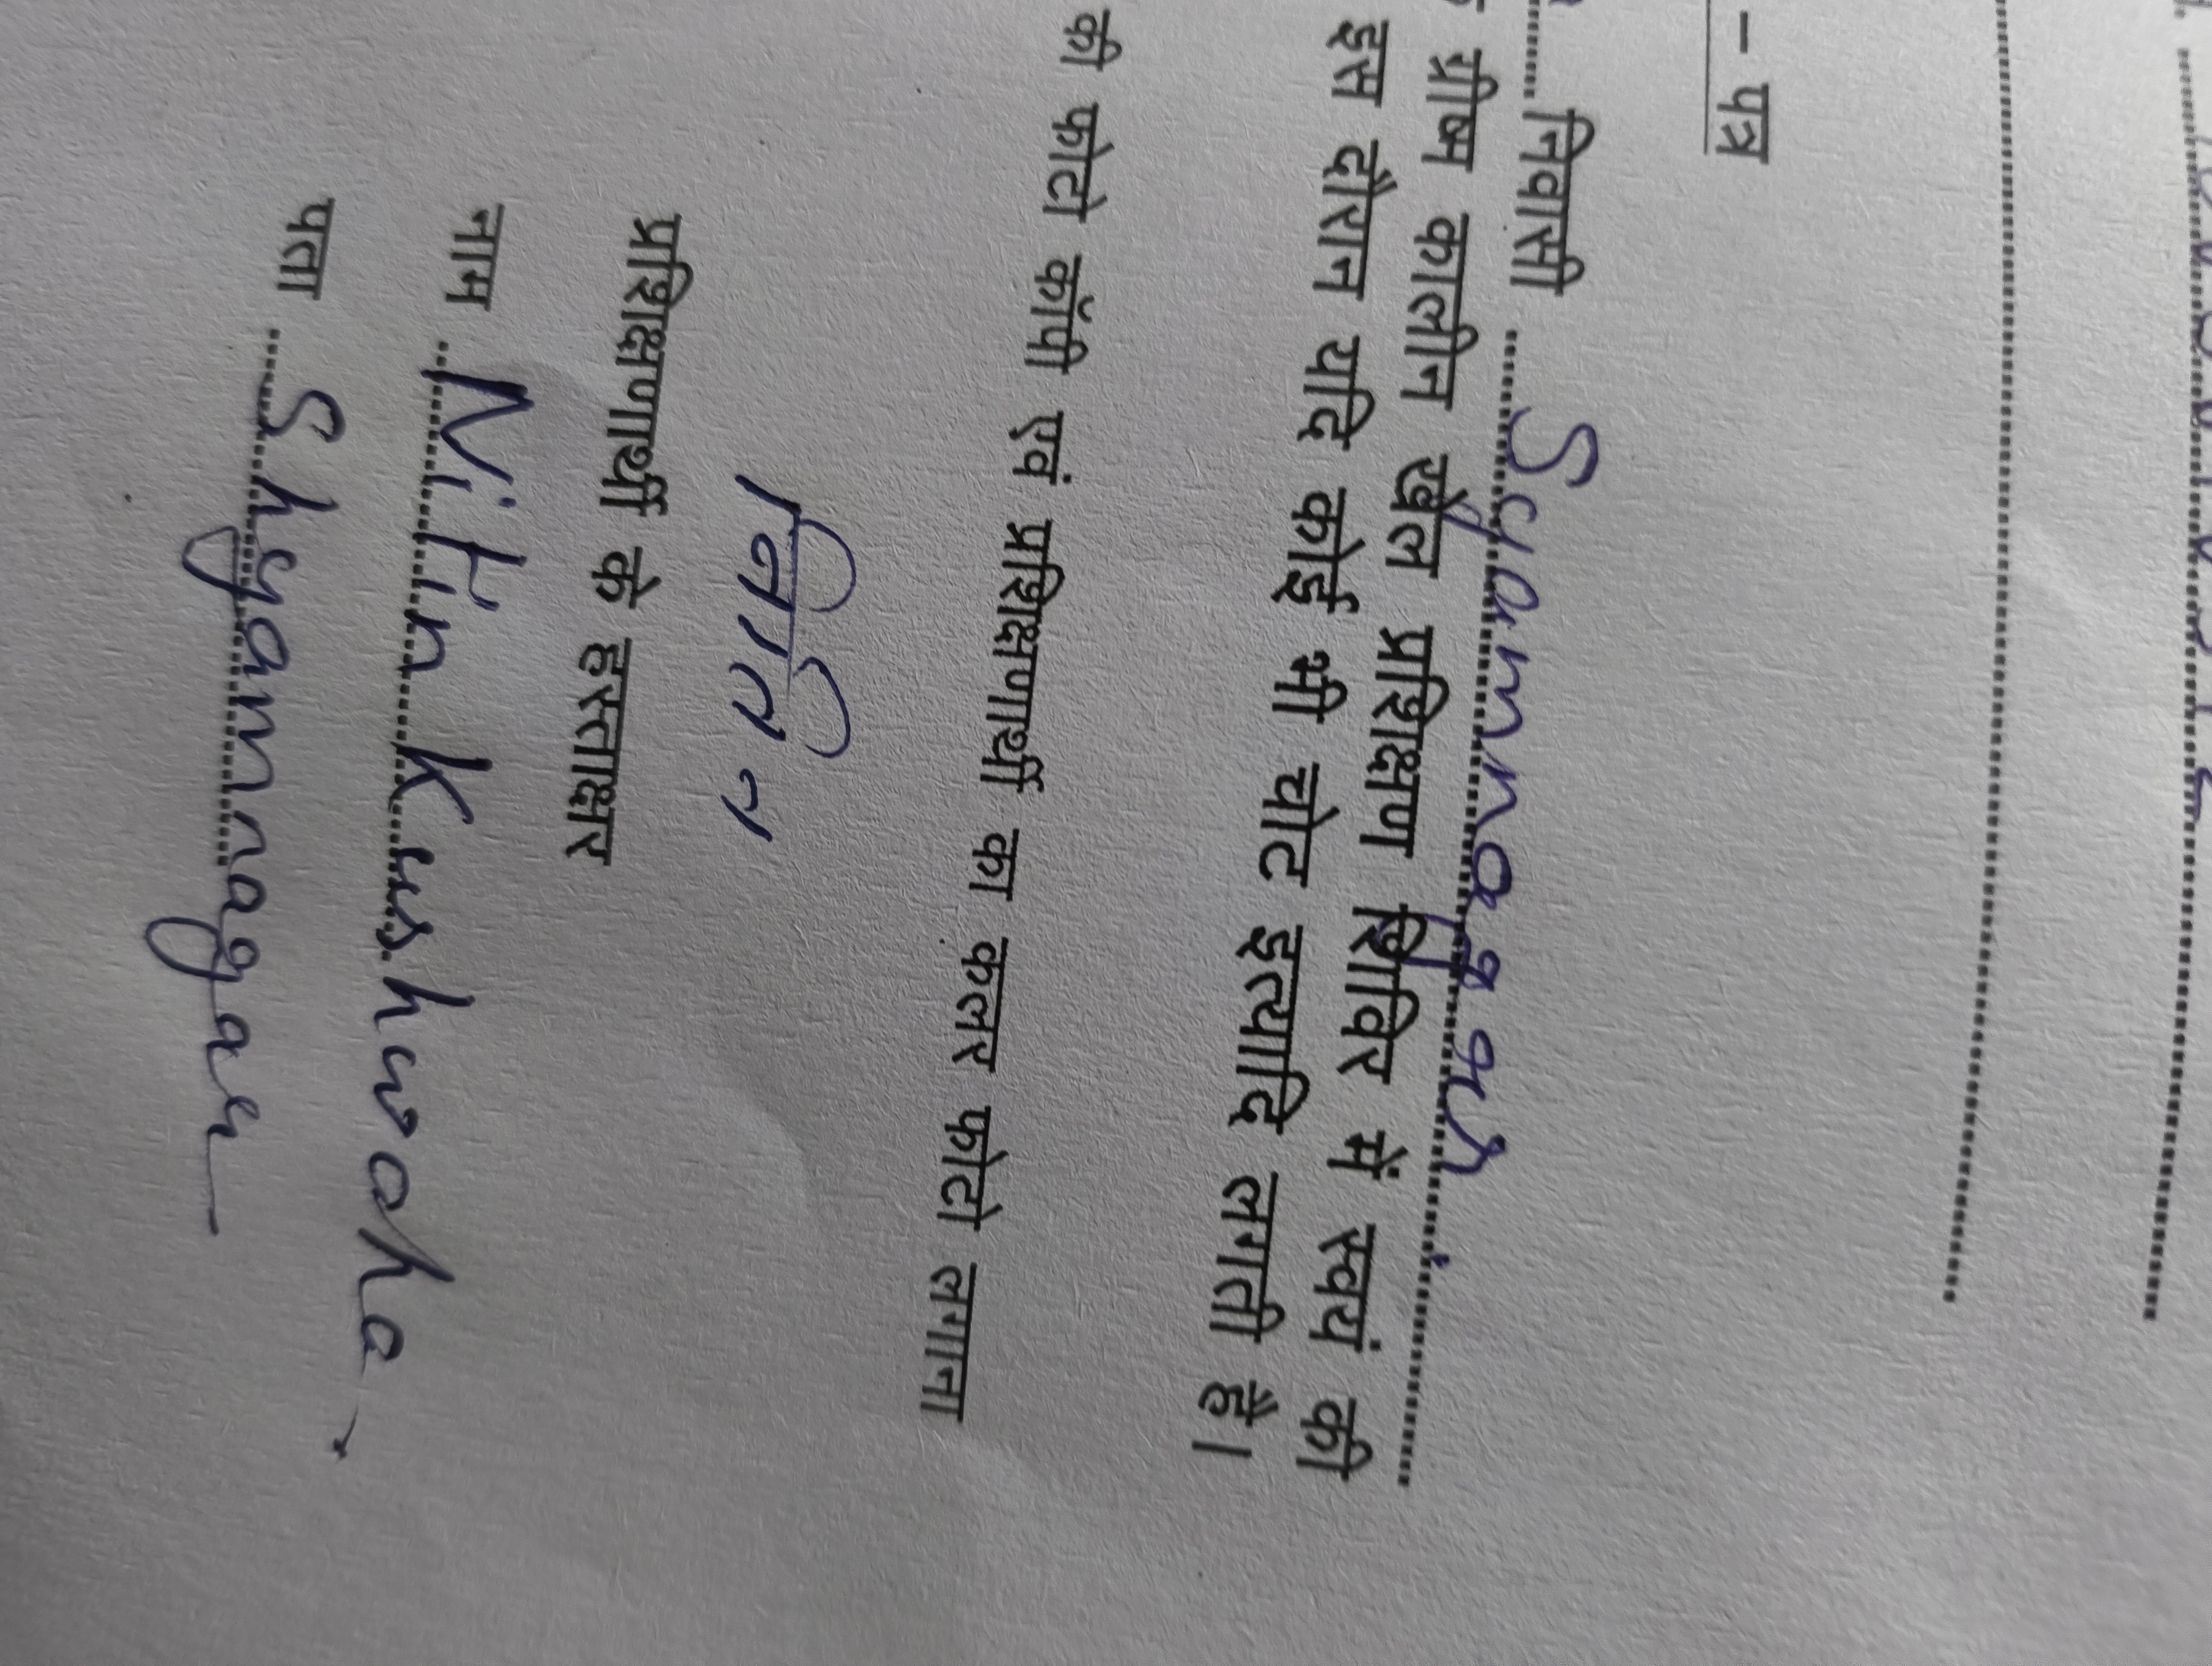 – पत्र
निवासी ..... Syamnagar
ग्रीष्म कालीन खेल प्रशिक्षण शिविर में स्वयं की
इस दौरान यदि कोई भी चोट इत्यादि लगती है।
की फोटो कॉपी एवं प्रशिक्षणार्थी का कलर फोटो लगाना
नितिन
प्रशिक्षणार्थी के हस्ताक्षर
नाम .. Nitin Kushwaha
पता ..... Shyamnagar